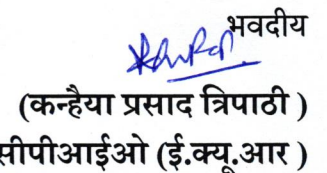 भवदीय
(कन्हैया प्रसाद त्रिपाठी )
सीपीआईओ (ई.क्यू.आर )